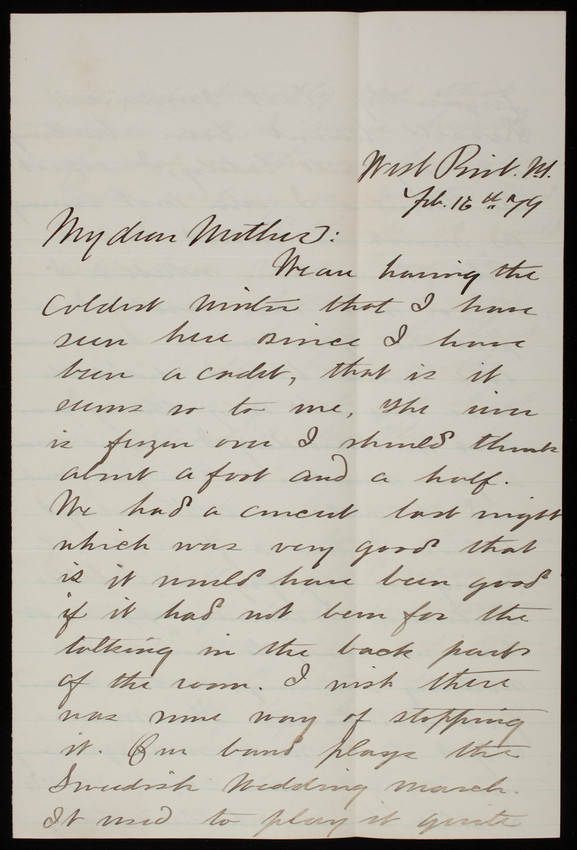 West Point. N.Y.
Feb. 16th 79
My dear Mother:
We are having the
coldest winter that I have
seen here since I have
been a cadet, that is it
seems so to me, the river
is frozen over I should think
about a foot and a half.
We had a concert last night
which was very good that
is it would have been good
if it had not been for the
talking in the back part
of the room. I wish there
was some way of stopping
it. Our band plays the
Swedish Wedding march.
It used to play it quite